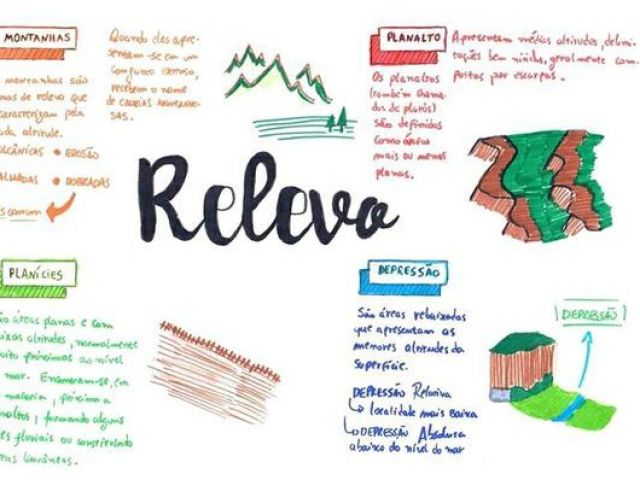 MONTANHAS
montanhas são
mas de relevo que
caracterizam pela
da altitude.
• EROSÃO
• DOBRADAS
Quando elas apre-
sentam-se em um
conjunto extenso,
recebem o nome
de CADEIAS MONTANHO-
SAS.
PLANALTO
Apresentam médias altitudes, delimi-
tações bem nítidas, geralmente com-
postas por escarpas.
Os planaltos
(também chama-
dos de platôs)
são definidos
como áreas
mais ou menos
planas.
Relevo
PLANÍCIES
áreas planas e com
altitudes, normalmente
próximas ao nível
mar. Encontram-se, em
maioria, próximo a
formando alguns
fluviais ou
DEPRESSÃO
São áreas rebaixadas
que apresentam as
menores altitudes da
superfície.
DEPRESSÃO Relativa
↳ localidade mais baixa
↳ DEPRESSÃO Absoluta
abaixo do nível do mar
DEPRESSÃO